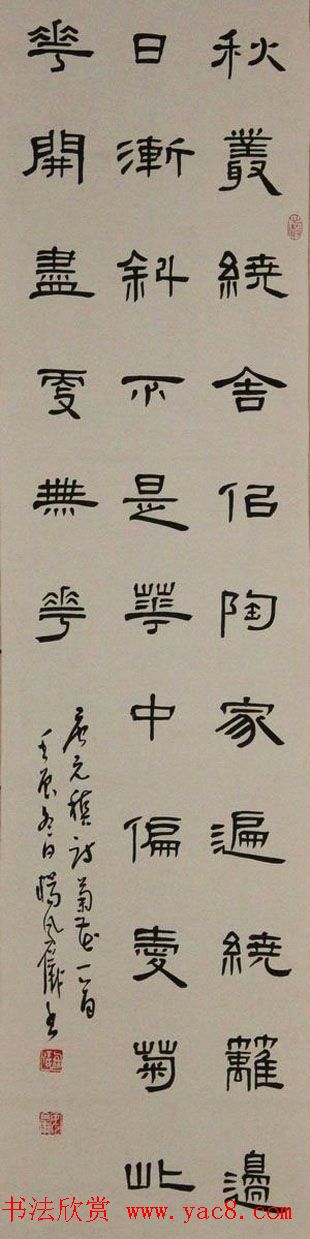 秋叢繞舍佀陶家遍繞籬邊
日漸斜不是華中偏愛菊此
華開盡更無華
唐元稹詩菊花一首
壬辰冬日
書法欣赏 www.yac8.com